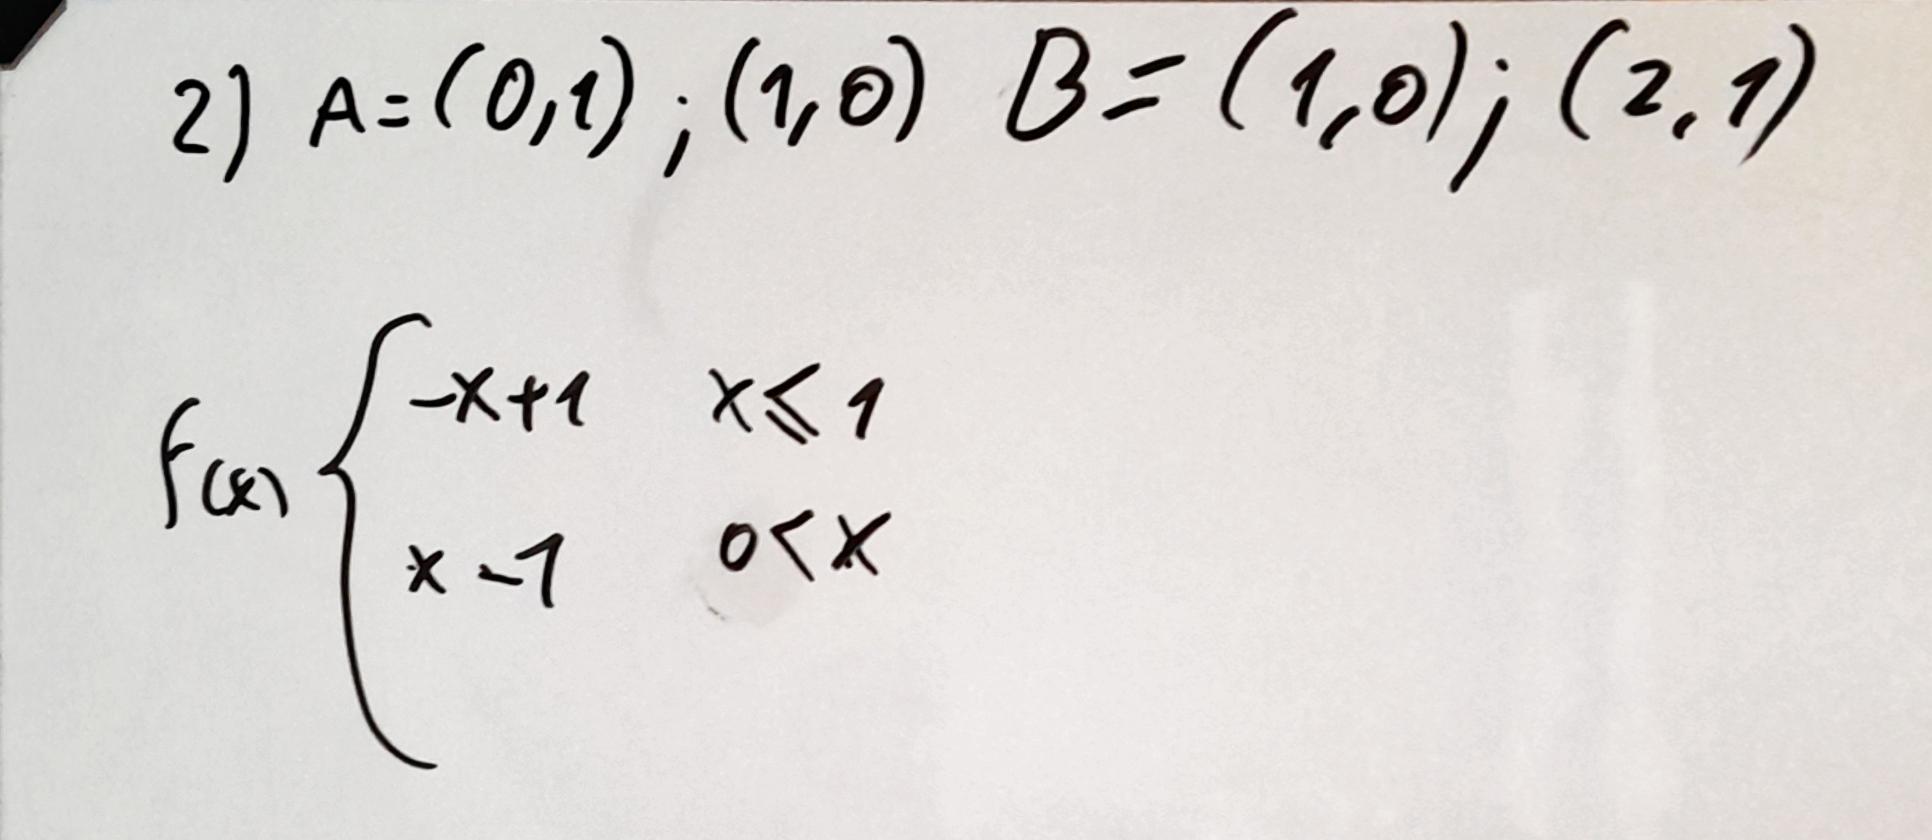 2) A=(0,1);(1,0) B=(1,0);(2,1)
f(x) { -x+1 x≤1
x-1 0<x